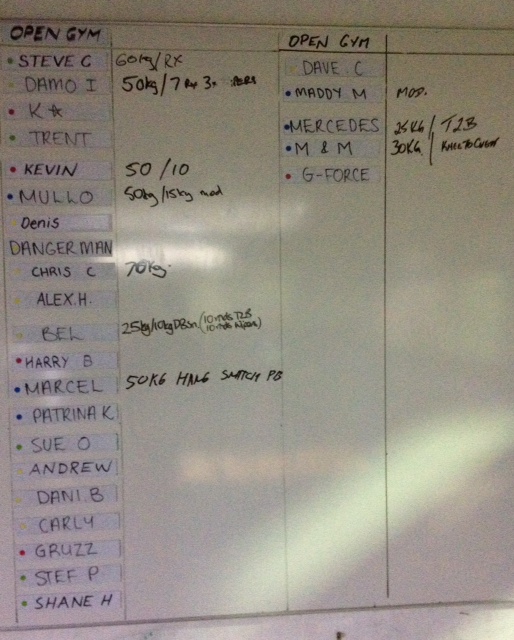 OPEN GYM
STEVE C 60kg/RX
DAMO I 50kg/7 Rx 3x
K☆
TRENT
KEVIN 50/10
MULLO 50kg/15kg mod
Denis
DANGERMAN
CHRIS C 70kg.
ALEX.H.
BEL 25kg/10kg DBsn (10 rnds T2B
10 rnds
HARRY B
MARCEL 50KG HANG SNATCH PB
PATRINA K
SUE O
ANDREW
DANI B
CARLY
GRUZZ
STEF P
SHANE H
OPEN GYM
DAVE C
MADDY M MOD.
MERCEDES 25KG / T2B
M & M 30KG / KNEE TO CHEST
G-FORCE